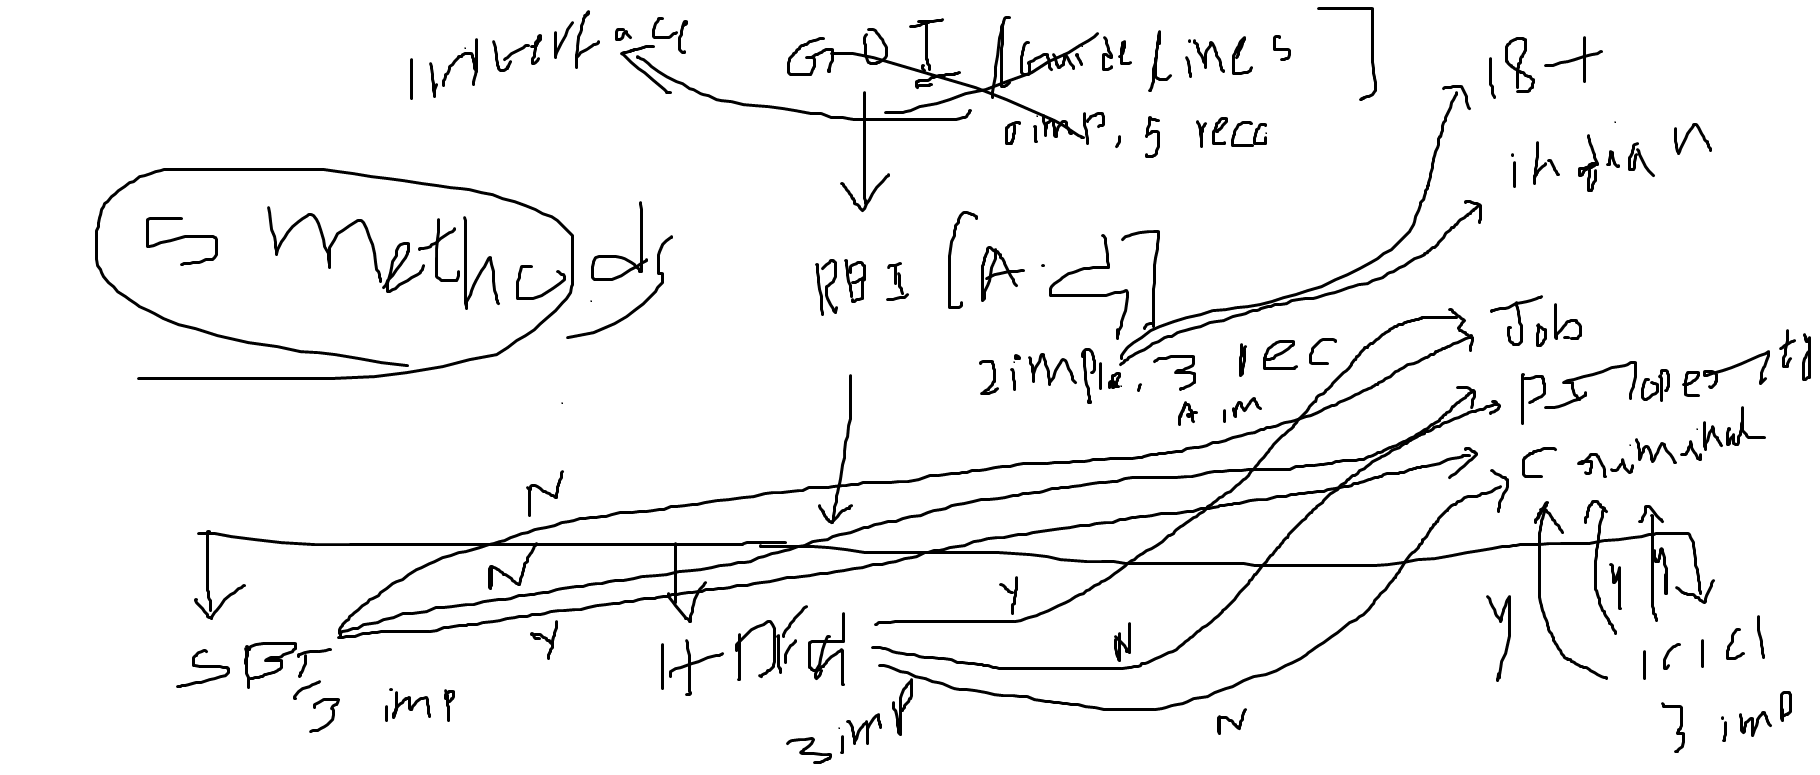 Interface GOI [Guidelines]
0 imp, 5 reco
18+
indian
5 Methods
RBI [A.
2 imple, 3 rec
Job
A im
Criminal
N
N
Y
Y
N
N
Y
Y
Y
SBI
3 imp
HDFC
3 imp
ICICI
3 imp